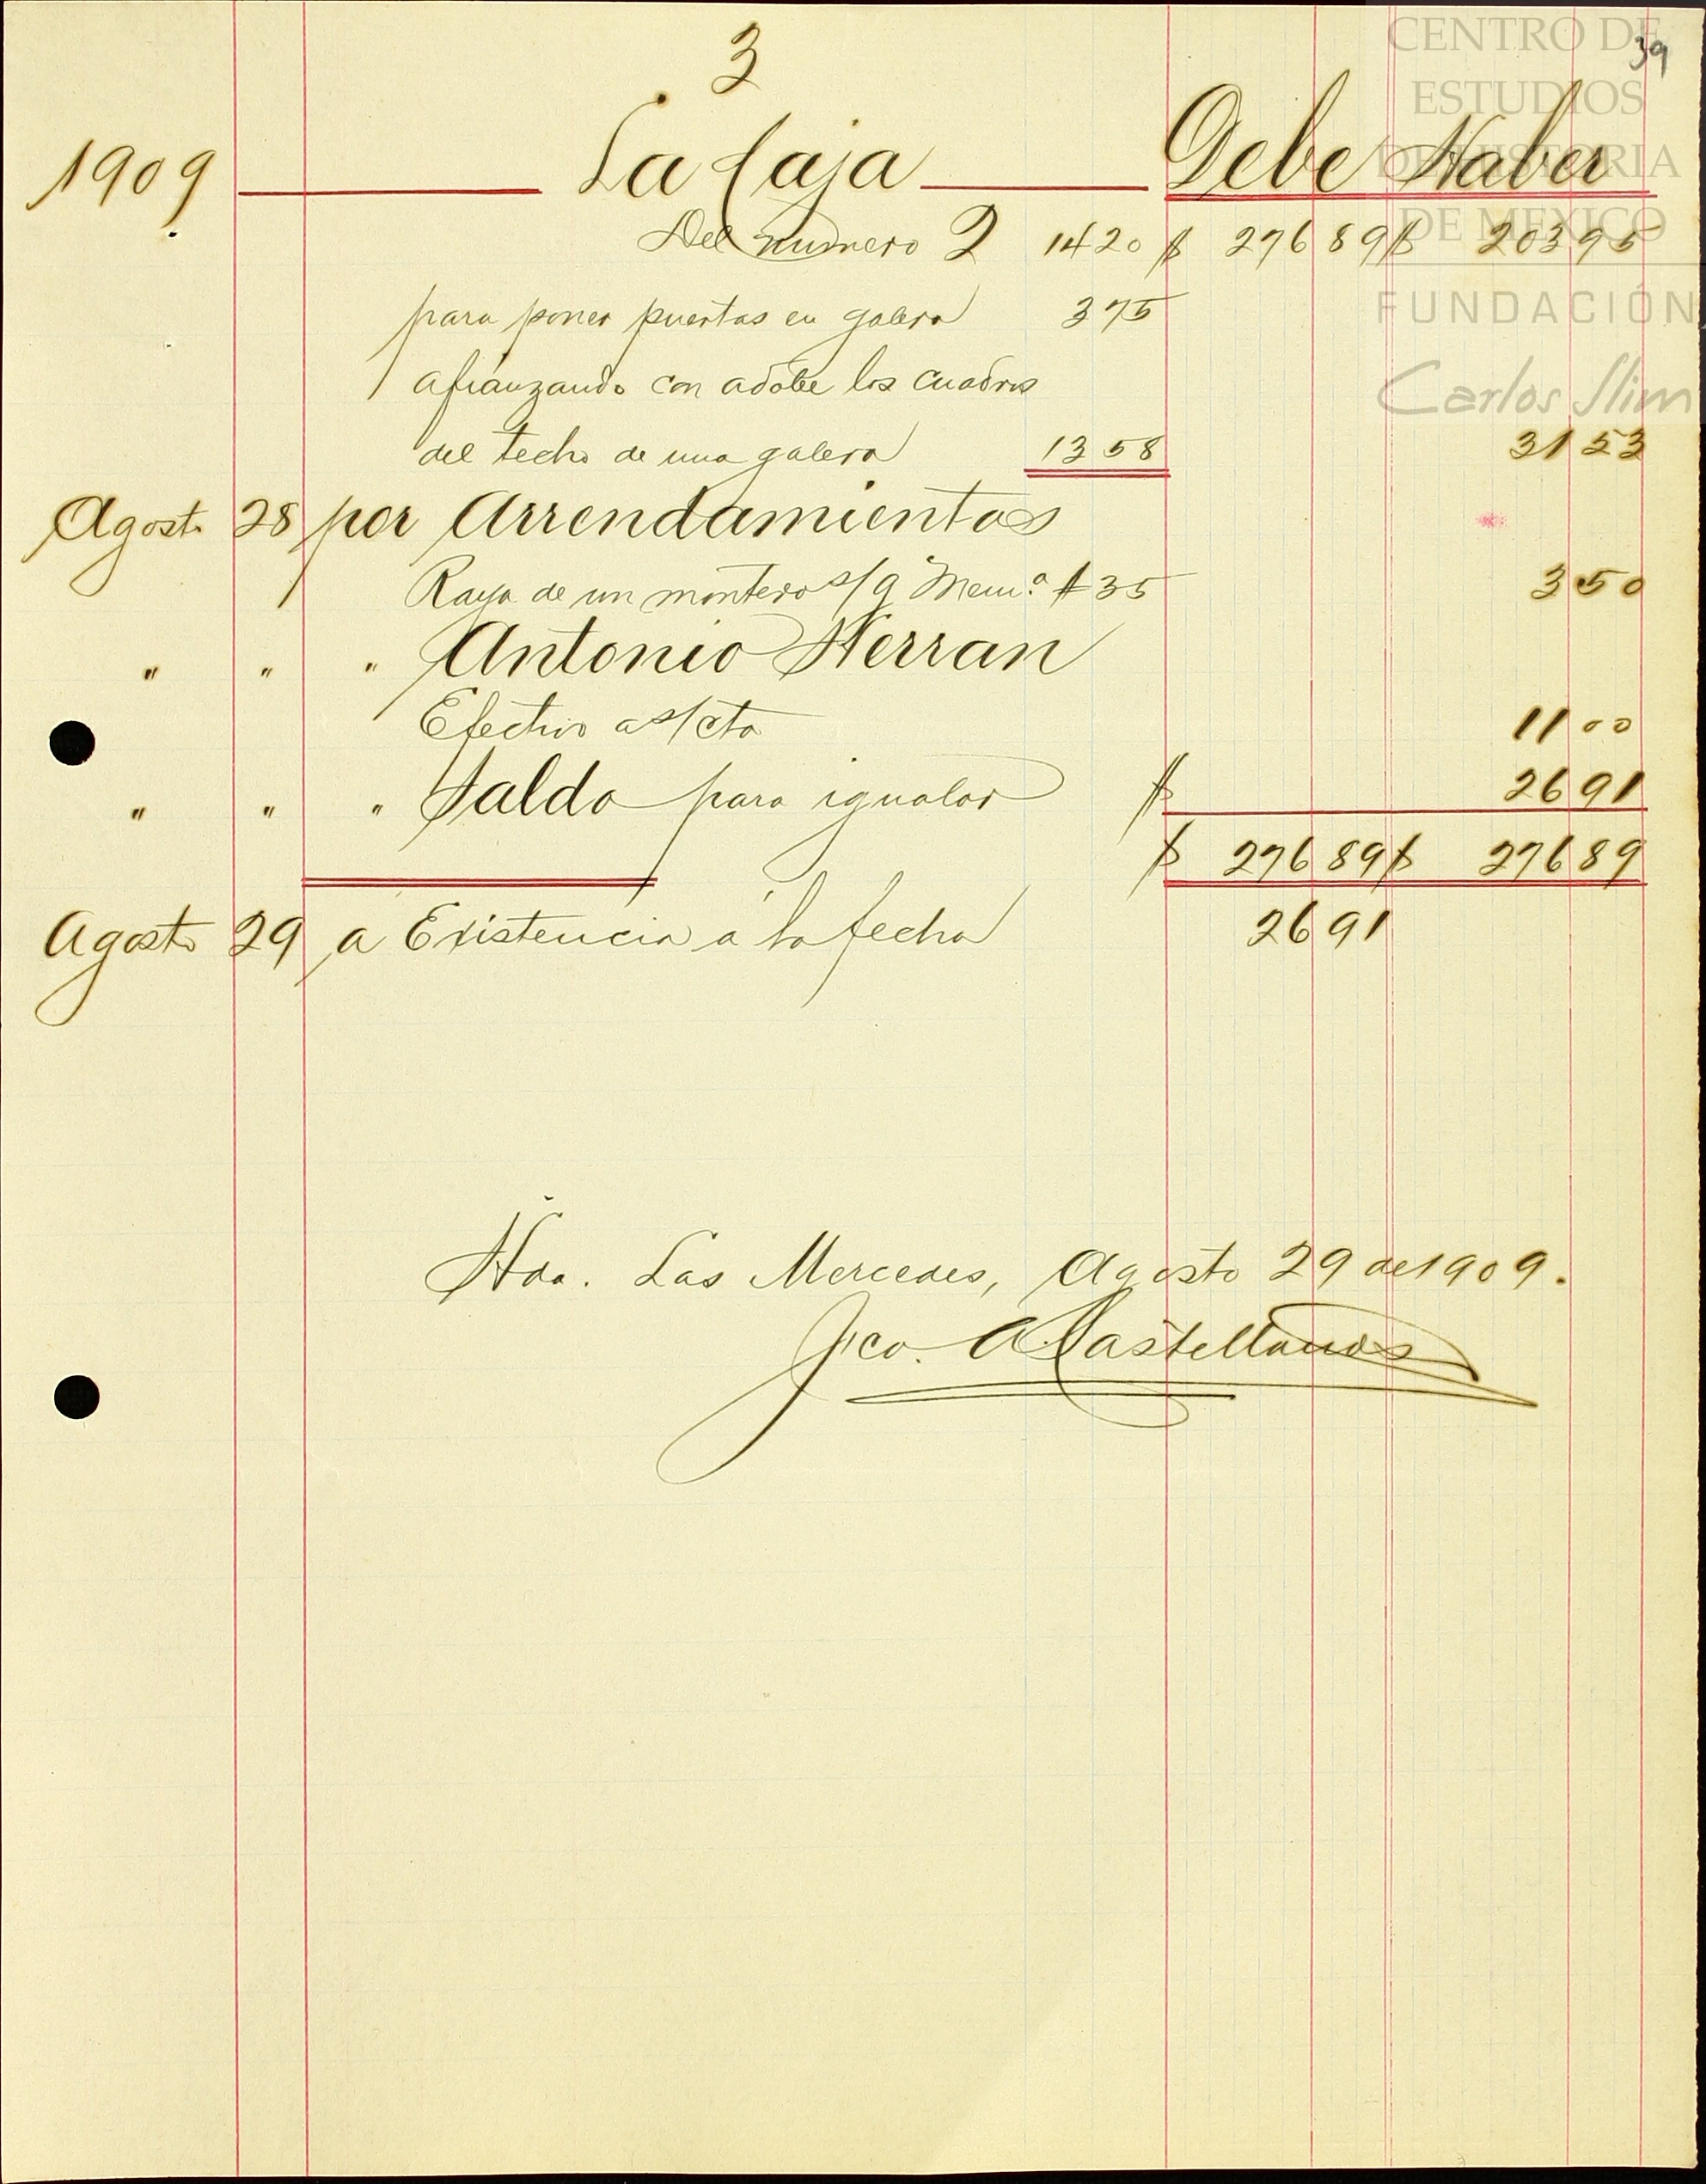 3
39
CENTRO DE
ESTUDIOS
DE HISTORIA
DE MEXICO
FUNDACIÓN
Carlos Slim
1909 La Caja Debe Haber
Del numero 2 1420 $ 27689 $ 20395
para poner puertas en galera 375
afianzando con adobe los cuadros
del techo de una galera 1358 3153
Agosto 28 por Arrendamientos
Raya de un montero s/g Mem.ª # 35 350
" " " Antonio Herran
Efectivo a s/cta 1100
" " " Saldo para igualar $ 2691
$ 27689 $ 27689
Agosto 29 a Existencia á la fecha 2691
Hda. Las Mercedes, Agosto 29 de 1909.
Fco. A Castellanos